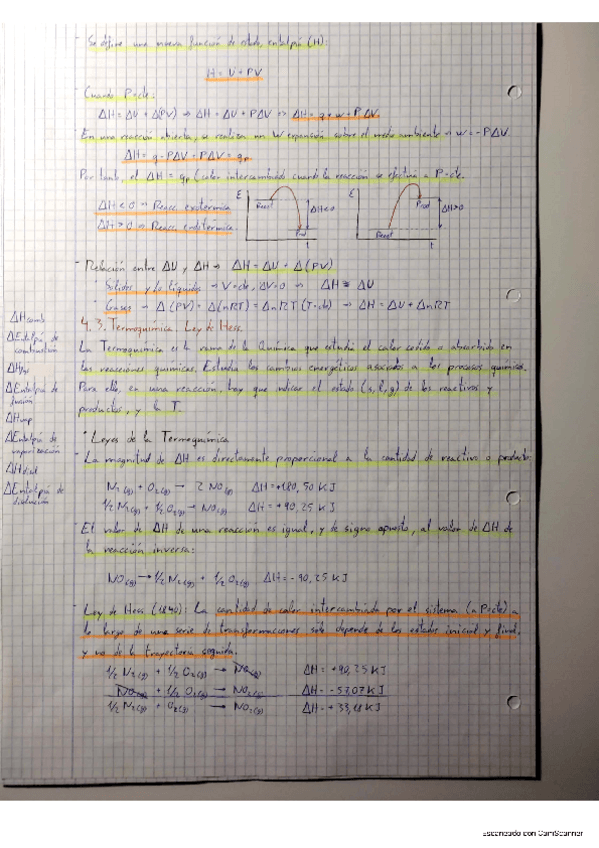 - Se define una nueva función de estado, entalpía (H):
H = U + PV
- Cuando P=cte:
ΔH = ΔU + Δ(PV) ⇒ ΔH = ΔU + PΔV ⇒ ΔH = q + w + PΔV.
En una reacción abierta, se realiza un W expansión sobre el medio ambiente ⇒ w = -PΔV.
ΔH = q - PΔV + PΔV = qp
Por tanto, el ΔH = qp (calor intercambiado cuando la reacción se efectúa a P=cte.
ΔH < 0 ⇒ Reacc. exotérmica
ΔH > 0 ⇒ Reacc. endotérmica
E
React
Prod
ΔH<0
t
E
React
Prod
ΔH>0
t
- Relación entre ΔU y ΔH → ΔH = ΔU + Δ(PV)
· Sólidos y/o líquidos → V=cte, ΔV=0 → ΔH ≅ ΔU
· Gases → Δ(PV) = Δ(nRT) = ΔnRT (T=cte) → ΔH = ΔU + ΔnRT
4.3. Termoquímica. Ley de Hess.
La Termoquímica es la rama de la Química que estudia el calor cedido o absorbido en
las reacciones químicas. Estudia los cambios energéticos asociados a los procesos químicos.
Para ello, en una reacción, hay que indicar el estado (s, l, g) de los reactivos y
productos, y la T.
· Leyes de la Termoquímica
- La magnitud de ΔH es directamente proporcional a la cantidad de reactivo o producto:
N2(g) + O2(g) → 2 NO(g) ΔH = +180,50 KJ
1/2 N2(g) + 1/2 O2(g) → NO(g) ΔH = +90,25 KJ
- El valor de ΔH de una reacción es igual, y de signo opuesto, al valor de ΔH de
la reacción inversa:
NO(g) → 1/2 N2(g) + 1/2 O2(g) ΔH = -90,25 KJ
- Ley de Hess (1840): La cantidad de calor intercambiada por el sistema (a P=cte) a
lo largo de una serie de transformaciones sólo depende de los estados inicial y final,
y no de la trayectoria seguida.
1/2 N2(g) + 1/2 O2(g) → NO(g) ΔH = +90,25 KJ
NO(g) + 1/2 O2(g) → NO2(g) ΔH = -57,07 KJ
1/2 N2(g) + O2(g) → NO2(g) ΔH = +33,18 KJ
ΔHcomb
ΔEntalpía de
combustión
ΔHfus
ΔEntalpía de
fusión
ΔHvap
ΔEntalpía de
vaporización
ΔHdisol
ΔEntalpía de
disolución
Escaneado con CamScanner